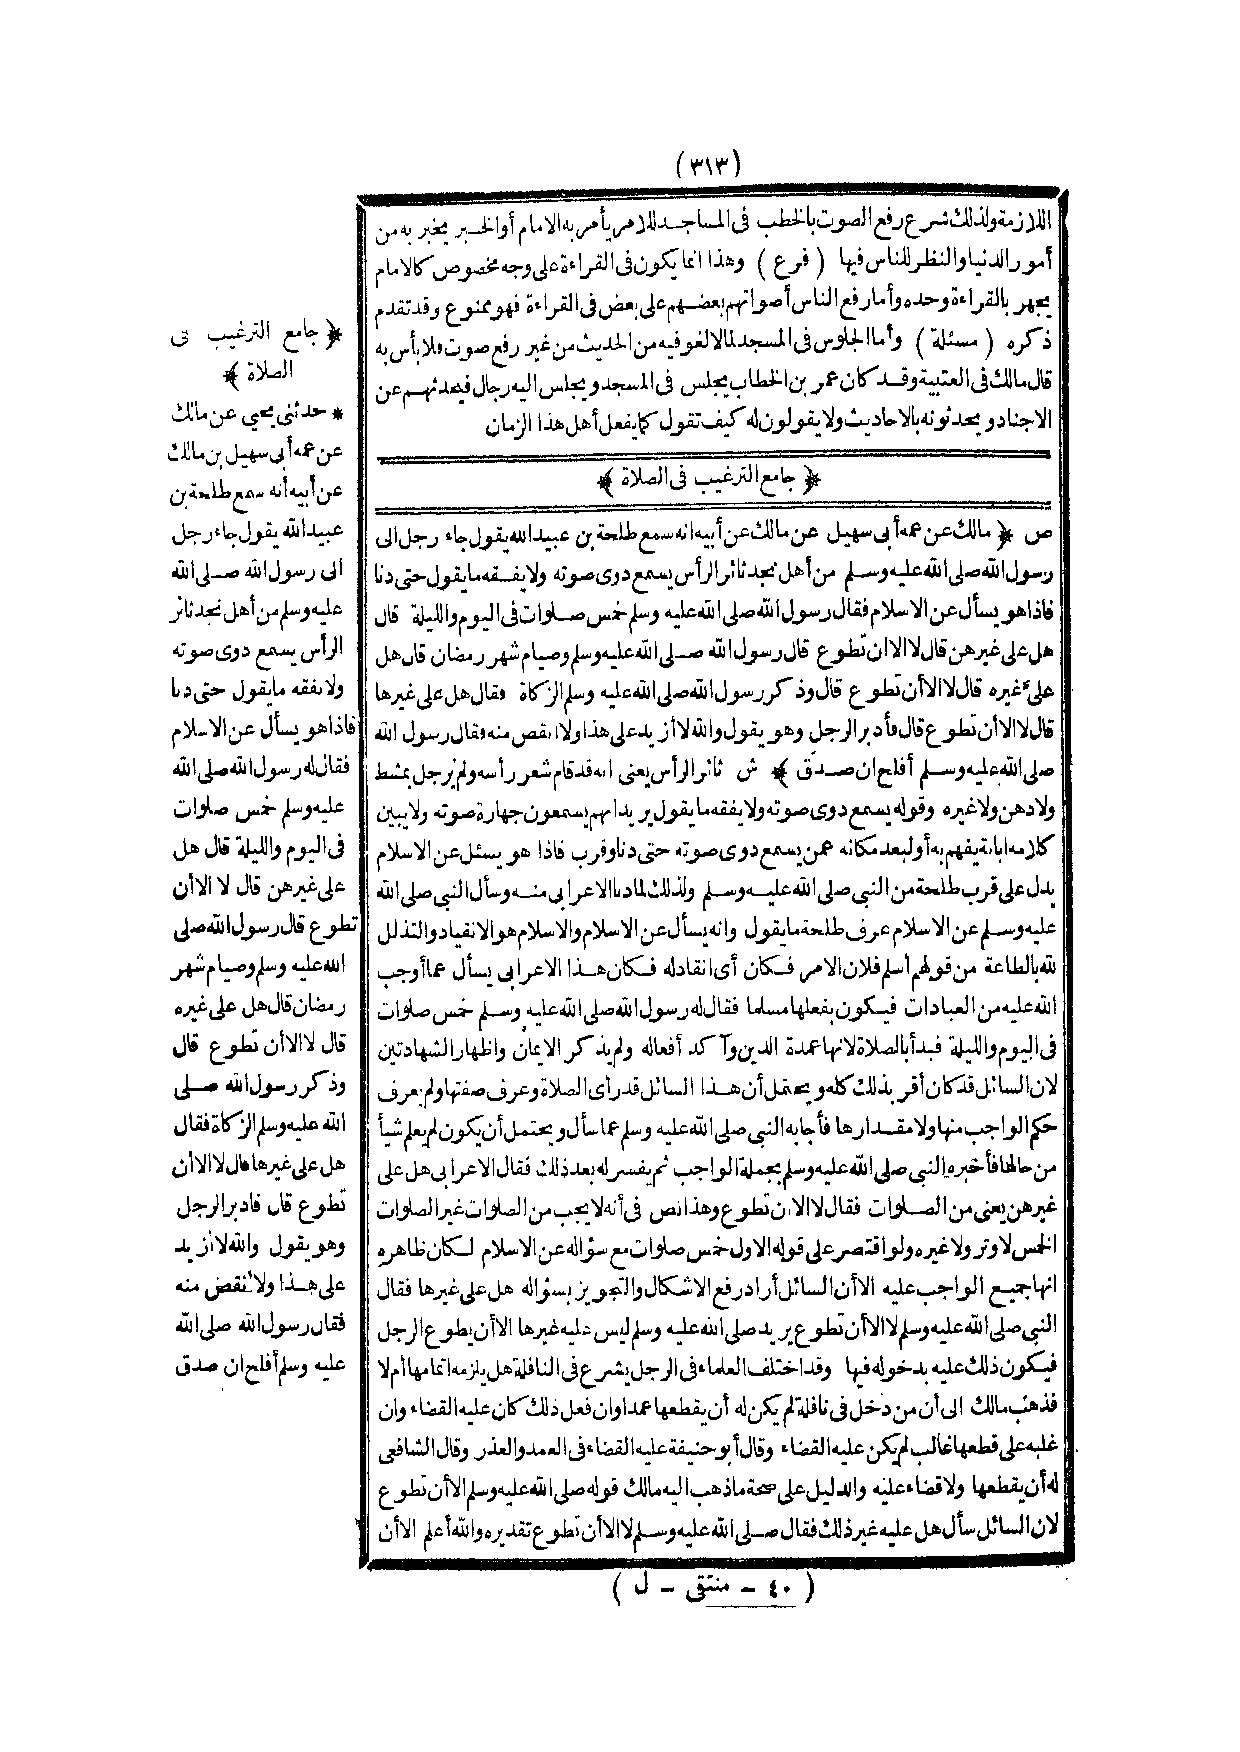 (٣١٣)
اللازمة ولذلك شرع رفع الصوت بالخطب فى المساجد للامر يأمر به الامام أو الخبر يخبر به من
أمور الدنيا والنظر للناس فيها ( فرع ) وهذا انما يكون فى القراءة على وجه مخصوص كالامام
يجهر بالقراءة وحده وأما رفع الناس أصواتهم بعضهم على بعض فى القراءة فهو ممنوع وقد تقدم
ذكره ( مسئلة ) وأما الجلوس فى المسجد لما لا لغو فيه من الحديث من غير رفع صوت فلا بأس به
قال مالك فى العتبية وقد كان عمر بن الخطاب يجلس فى المسجد ويجلس اليه رجال فيحدثهم عن
الاجناد ويحدثونه بالاحاديث ولا يقولون له كيف تقول كما يفعل أهل هذا الزمان
﴿ جامع الترغيب فى الصلاة ﴾
ص ﴿ مالك عن عمه أبى سهيل عن مالك عن أبيه انه سمع طلحة بن عبيد الله يقول جاء رجل الى
رسول الله صلى الله عليه وسلم من أهل نجد ثائر الرأس يسمع دوى صوته ولا يفقه ما يقول حتى دنا
فاذا هو يسأل عن الاسلام فقال رسول الله صلى الله عليه وسلم خمس صلوات فى اليوم والليلة قال
هل على غيرهن قال لا الا ان تطوع قال رسول الله صلى الله عليه وسلم وصيام شهر رمضان قال هل
على غيره قال لا الا أن تطوع قال وذكر رسول الله صلى الله عليه وسلم الزكاة فقال هل على غيرها
قال لا الا أن تطوع قال فأدبر الرجل وهو يقول والله لا أزيد على هذا ولا انقص منه فقال رسول الله
صلى الله عليه وسلم أفلح ان صدق ﴾ ش ثائر الرأس يعنى انه قد قام شعر رأسه ولم يرجل بمشط
ولا دهن ولا غيره وقوله يسمع دوى صوته ولا يفقه ما يقول يريد انهم يسمعون جهارة صوته ولا يبين
كلامه ابانة يفهم به أو لبعد مكانه عمن يسمع دوى صوته حتى دنا وقرب فاذا هو يسئل عن الاسلام
يدل على قرب طلحة من النبى صلى الله عليه وسلم ولذلك لما دنا الاعرابى منه وسأل النبى صلى الله
عليه وسلم عن الاسلام عرف طلحة ما يقول وانه يسأل عن الاسلام والاسلام هو الانقياد والتذلل
لله بالطاعة من قولهم أسلم فلان الامر فكان أى انقاد له فكان هذا الاعرابى يسأل عما أوجب
الله عليه من العبادات فيكون بفعلها مسلما فقال له رسول الله صلى الله عليه وسلم خمس صلوات
فى اليوم والليلة فبدأ بالصلاة لانها عمدة الدين وآكد أفعاله ولم يذكر الايمان واظهار الشهادتين
لان السائل قد كان أقر بذلك كله ويحتمل أن هذا السائل قد رأى الصلاة وعرف صفتها ولم يعرف
حكم الواجب منها ولا مقدارها فأجابه النبى صلى الله عليه وسلم عما سأل ويحتمل أن يكون لم يعلم شيأ
من حالها فأخبره النبى صلى الله عليه وسلم بجملة الواجب ثم يفسر له بعد ذلك فقال الاعرابى هل على
غيرهن يعنى من الصلوات فقال لا الا ان تطوع وهذا نص فى أنه لا يجب من الصلوات غير الصلوات
الخمس لا وتر ولا غيره ولو اقتصر على قوله الاول خمس صلوات مع سؤاله عن الاسلام لكان ظاهره
انها جميع الواجب عليه الا أن السائل أراد رفع الاشكال والتجويز بسؤاله هل على غيرها فقال
النبى صلى الله عليه وسلم لا الا أن تطوع يريد صلى الله عليه وسلم ليس عليه غيرها الا أن يطوع الرجل
فيكون ذلك عليه بدخوله فيها وقد اختلف العلماء فى الرجل يشرع فى النافلة هل يلزمه اتمامها أم لا
فذهب مالك الى أن من دخل فى نافلة لم يكن له أن يقطعها عمدا وان فعل ذلك كان عليه القضاء وان
غلبه على قطعها غالب لم يكن عليه القضاء وقال أبو حنيفة عليه القضاء فى العمد والعذر وقال الشافعى
له أن يقطعها ولا قضاء عليه والدليل على صحة ما ذهب اليه مالك قوله صلى الله عليه وسلم الا أن تطوع
لان السائل سأل هل عليه غير ذلك فقال صلى الله عليه وسلم لا الا أن تطوع تقديره والله أعلم الا أن
﴿ جامع الترغيب فى
الصلاة ﴾
* حدثنى يحيى عن مالك
عن عمه أبى سهيل بن مالك
عن أبيه أنه سمع طلحة بن
عبيد الله يقول جاء رجل
الى رسول الله صلى الله
عليه وسلم من أهل نجد ثائر
الرأس يسمع دوى صوته
ولا يفقه ما يقول حتى دنا
فاذا هو يسأل عن الاسلام
فقال له رسول الله صلى الله
عليه وسلم خمس صلوات
فى اليوم والليلة قال هل
على غيرهن قال لا الا أن
تطوع قال رسول الله صلى
الله عليه وسلم وصيام شهر
رمضان قال هل على غيره
قال لا الا أن تطوع قال
وذكر رسول الله صلى
الله عليه وسلم الزكاة فقال
هل على غيرها قال لا الا أن
تطوع قال فادبر الرجل
وهو يقول والله لا أزيد
على هذا ولا أنقص منه
فقال رسول الله صلى الله
عليه وسلم أفلح ان صدق
( ٤٠ - منتقى - ل )